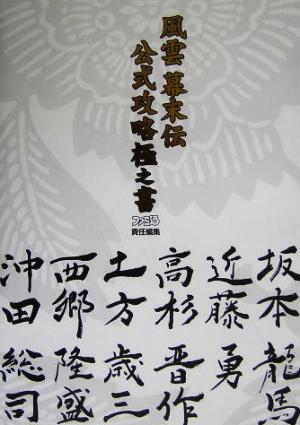 風雲幕末伝
公式攻略極之書
ファミ通
責任編集
坂本龍馬
近藤勇
高杉晋作
土方歳三
西郷隆盛
沖田総司